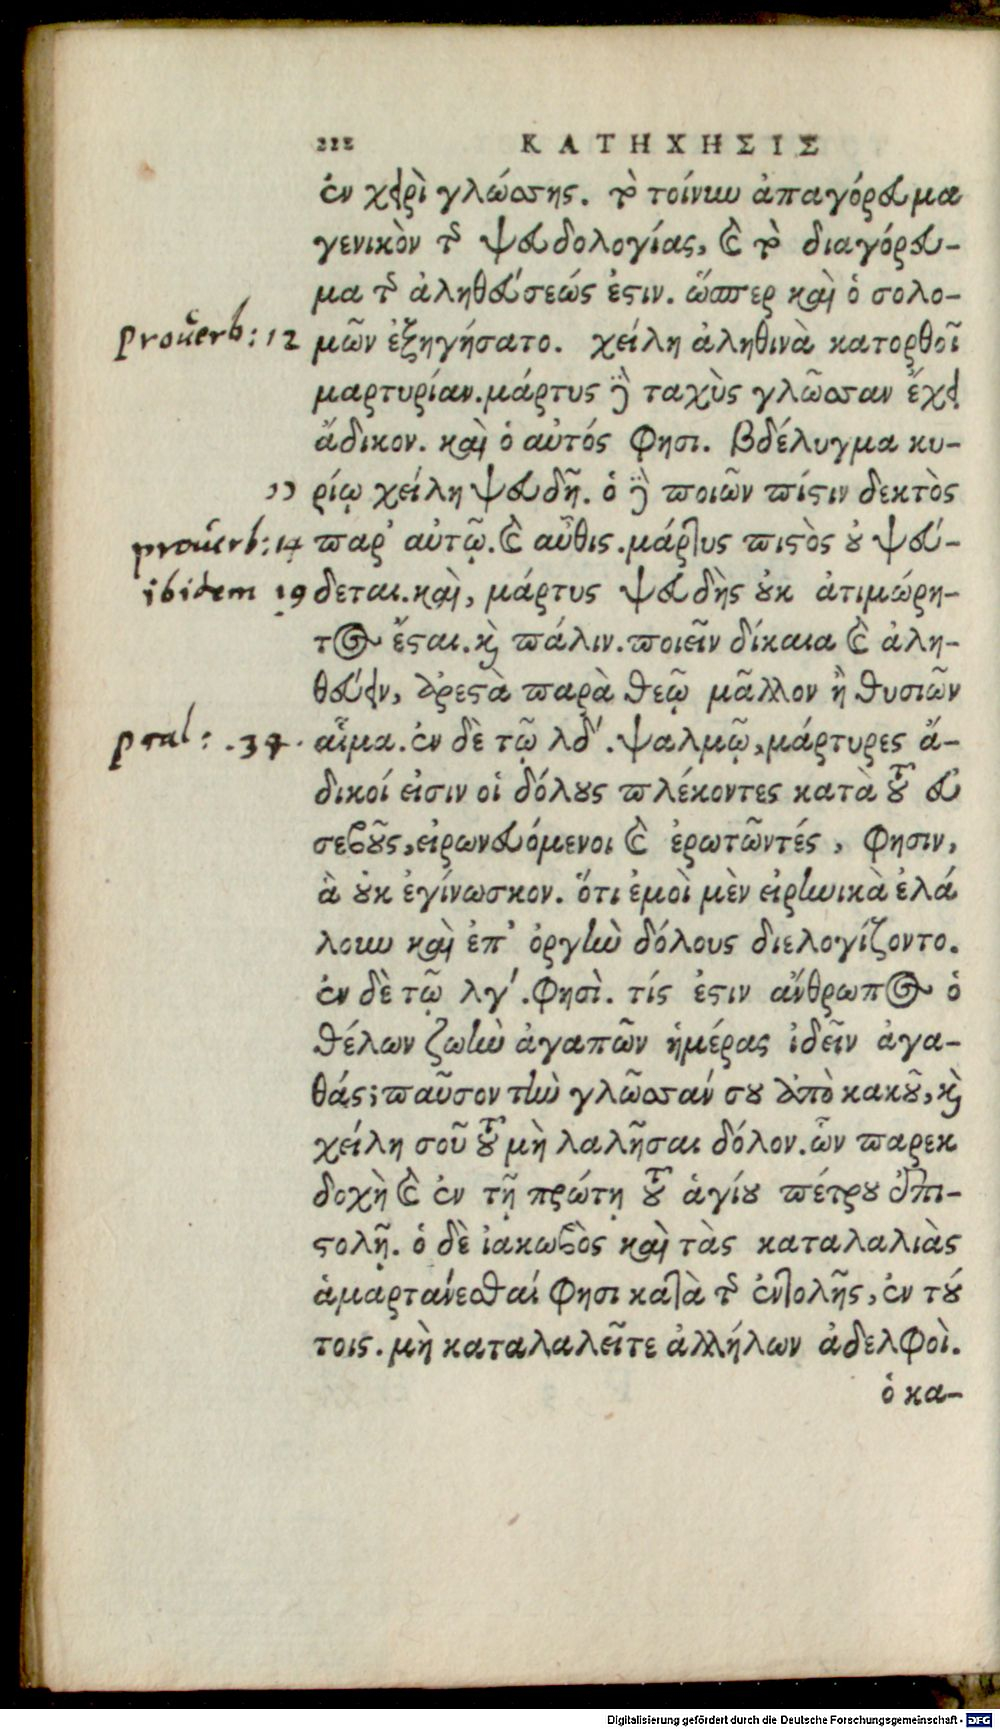 212 ΚΑΤΗΧΗΣΙΣ
ἐν χειρὶ γλώσσης. τὸ τοίνυν ἀπαγόρευμα
γενικὸν τῆς ψευδολογίας, καὶ τὸ διαγόρευ-
μα τῆς ἀληθεύσεώς ἐστιν. ὥσπερ καὶ ὁ σολο-
Prouerb: 12 μῶν ἐξηγήσατο. χείλη ἀληθινὰ κατορθοῖ
μαρτυρίαν. μάρτυς δὲ ταχὺς γλῶσσαν ἔχει
ἄδικον. καὶ ὁ αὐτός φησι. βδέλυγμα κυ-
〃 ρίῳ χείλη ψευδῆ. ὁ δὲ ποιῶν πίστιν δεκτὸς
prouerb: 14 παρ' αὐτῷ. καὶ αὖθις. μάρτυς πιστὸς οὐ ψεύ-
ibidem 19 δεται. καὶ, μάρτυς ψευδὴς οὐκ ἀτιμώρη-
τος ἔσται. καὶ πάλιν. ποιεῖν δίκαια καὶ ἀλη-
θεύειν, ἀρεστὰ παρὰ θεῷ μᾶλλον ἢ θυσιῶν
psal: .34. αἷμα. ἐν δὲ τῷ λδ´. ψαλμῷ, μάρτυρες ἄ-
δικοί εἰσιν οἱ δόλους πλέκοντες κατὰ τοῦ εὐ
σεβοῦς, εἰρωνευόμενοι καὶ ἐρωτῶντές, φησιν,
ἃ οὐκ ἐγίνωσκον. ὅτι ἐμοὶ μὲν εἰρηνικὰ ἐλά
λουν καὶ ἐπ' ὀργὴν δόλους διελογίζοντο.
ἐν δὲ τῷ λγ´. φησὶ. τίς ἐστιν ἄνθρωπος ὁ
θέλων ζωὴν ἀγαπῶν ἡμέρας ἰδεῖν ἀγα-
θάς; παῦσον τὴν γλῶσσάν σου ἀπὸ κακοῦ, καὶ
χείλη σοῦ τοῦ μὴ λαλῆσαι δόλον. ὧν παρεκ
δοχὴ καὶ ἐν τῇ πρώτῃ τοῦ ἁγίου πέτρου ἐπι-
στολῇ. ὁ δὲ ἰακωβὸς καὶ τὰς καταλαλιὰς
ἁμαρτάνεσθαί φησι κατὰ τῆς ἐντολῆς, ἐν τού
τοις. μὴ καταλαλεῖτε ἀλλήλων ἀδελφοὶ.
ὁ κα-
Digitalisierung gefördert durch die Deutsche Forschungsgemeinschaft - DFG